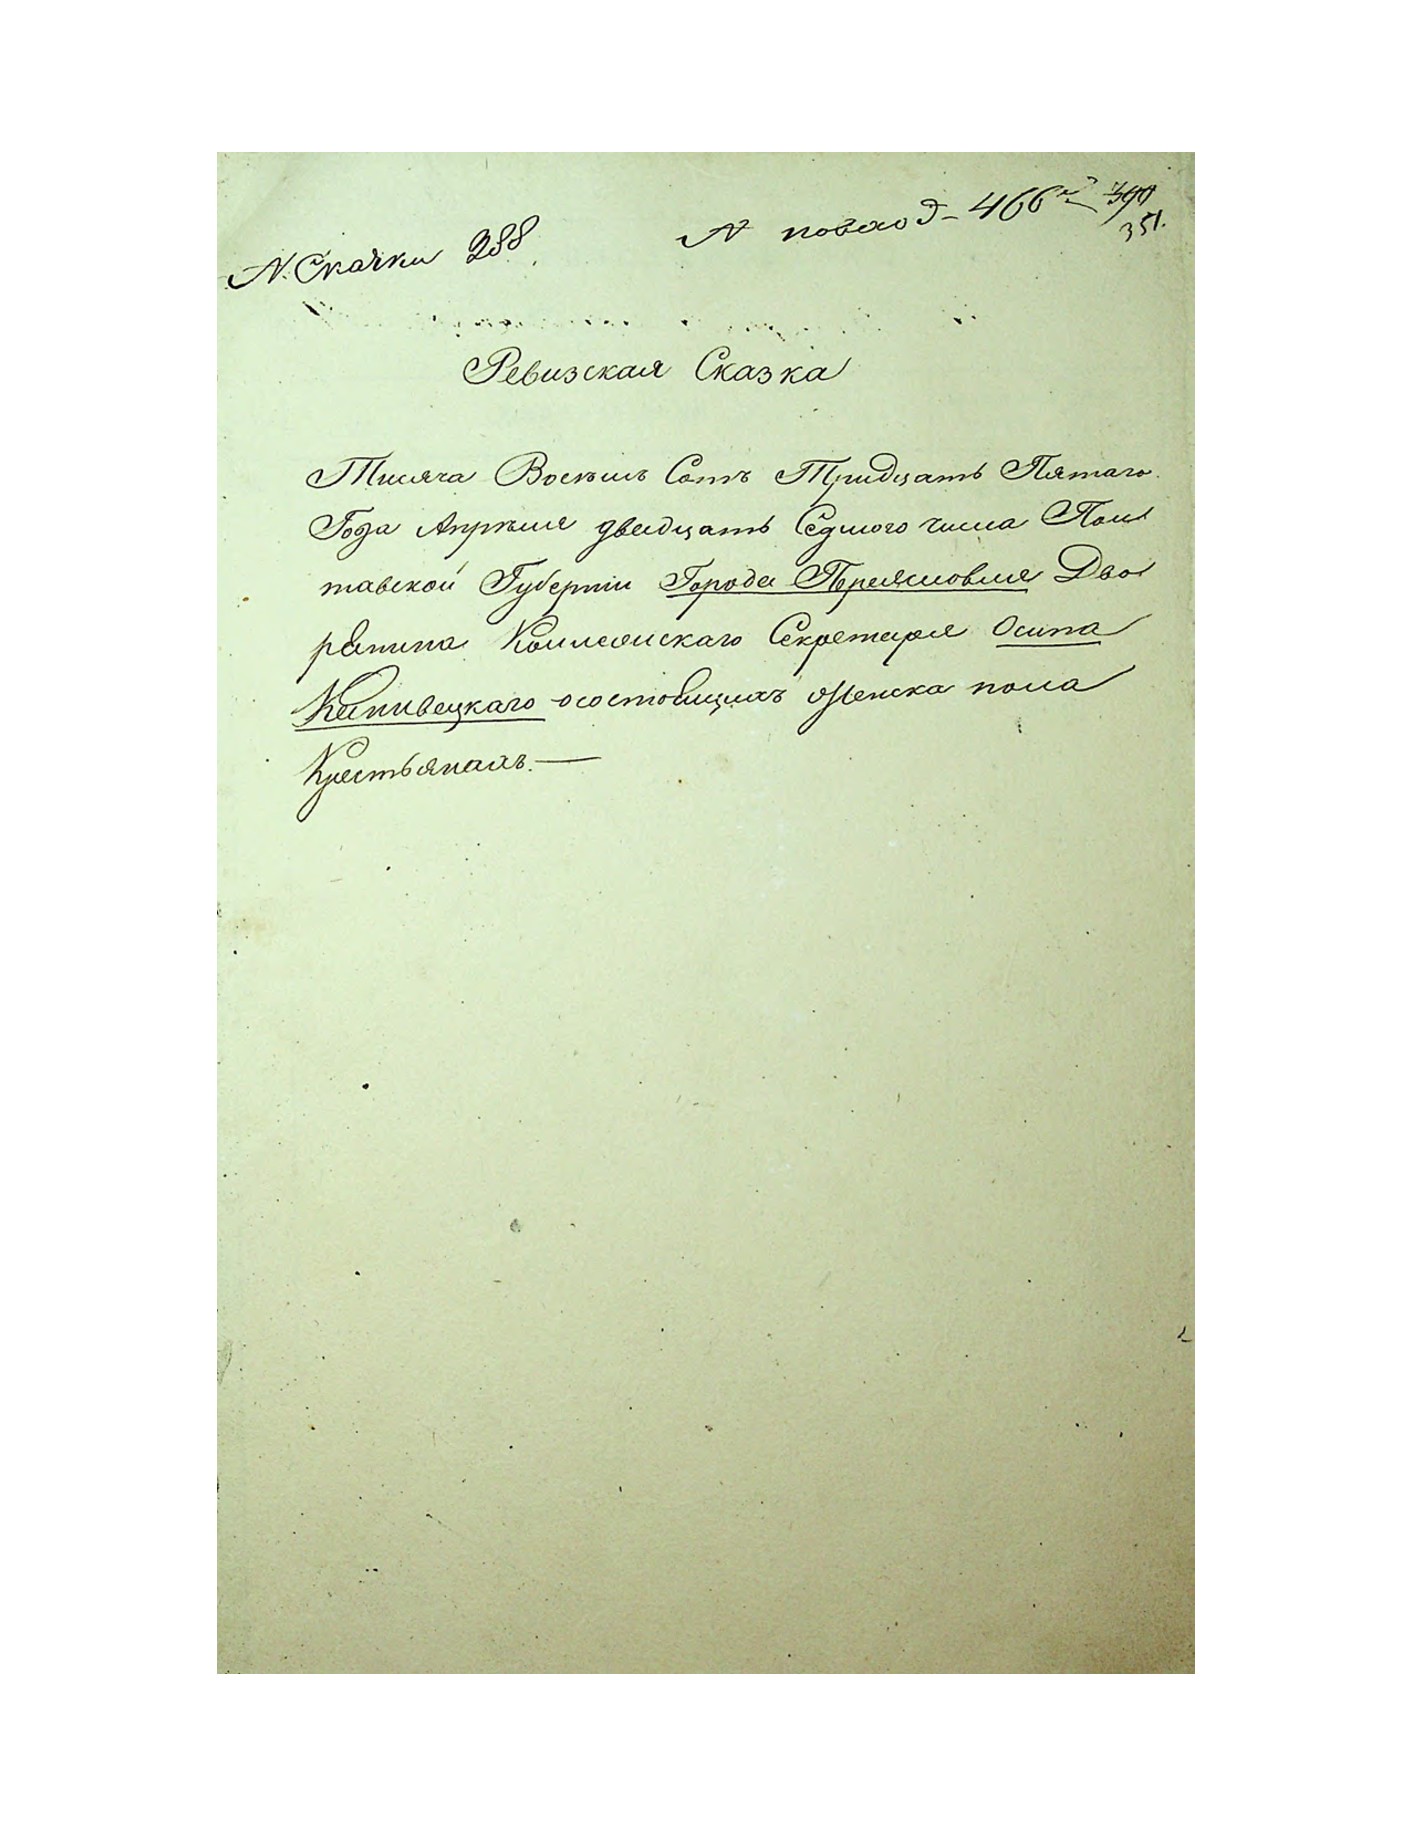 № Скачки 288
№ повсход - 466й 390
351.
Ревизская Сказка
Тисяча Восемь Сотъ Тридцать Пятаго
Года Апреля двадцать Седмого числа Пол
тавской Губернии Города Переяславля Дво
рянина Коллежскаго Секретаря Осипа
осостоящихъ Женска пола
Крестьянахъ. —